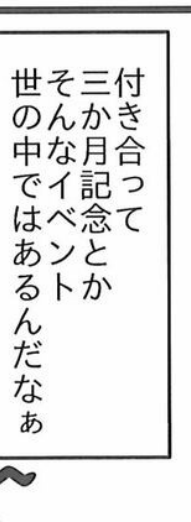 付き合って
三か月記念とか
そんなイベント
世の中ではあるんだなぁ